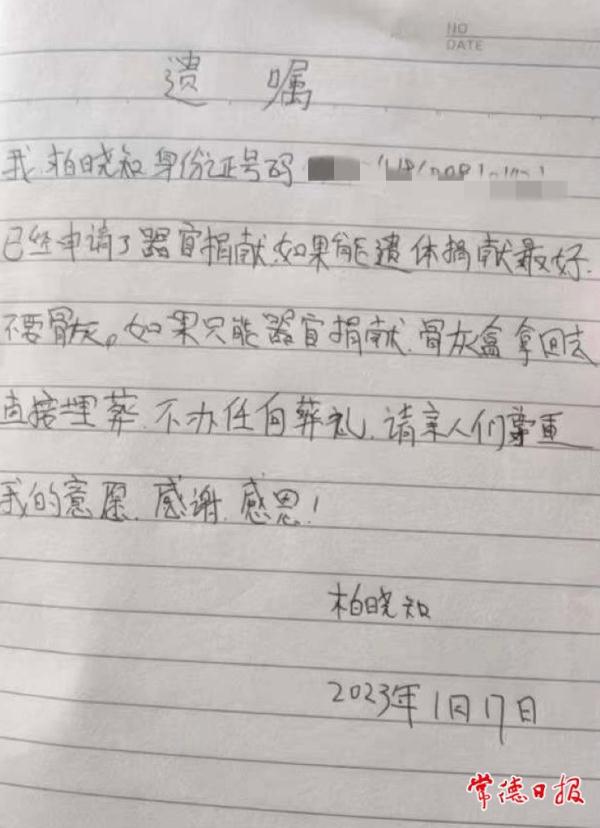 NO
DATE
遗 嘱
我.柏晓知身份证号码
已经申请了器官捐献.如果能遗体捐献最好.
不要骨灰。如果只能器官捐献.骨灰盒拿回去
直接埋葬.不办任何葬礼.请亲人们尊重
我的意愿.感谢.感恩!
柏晓知
2023年1月17日
常德日报